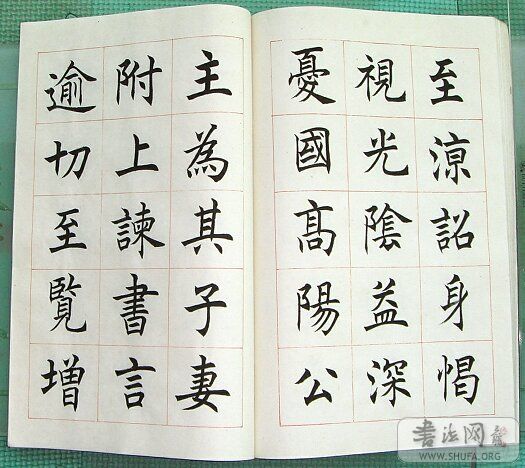 至涼詔身愒
視光陰益深
憂國髙陽公
主為其子妻
附上諫書言
逾切至覽增
書法网
WWW.SHUFA.ORG